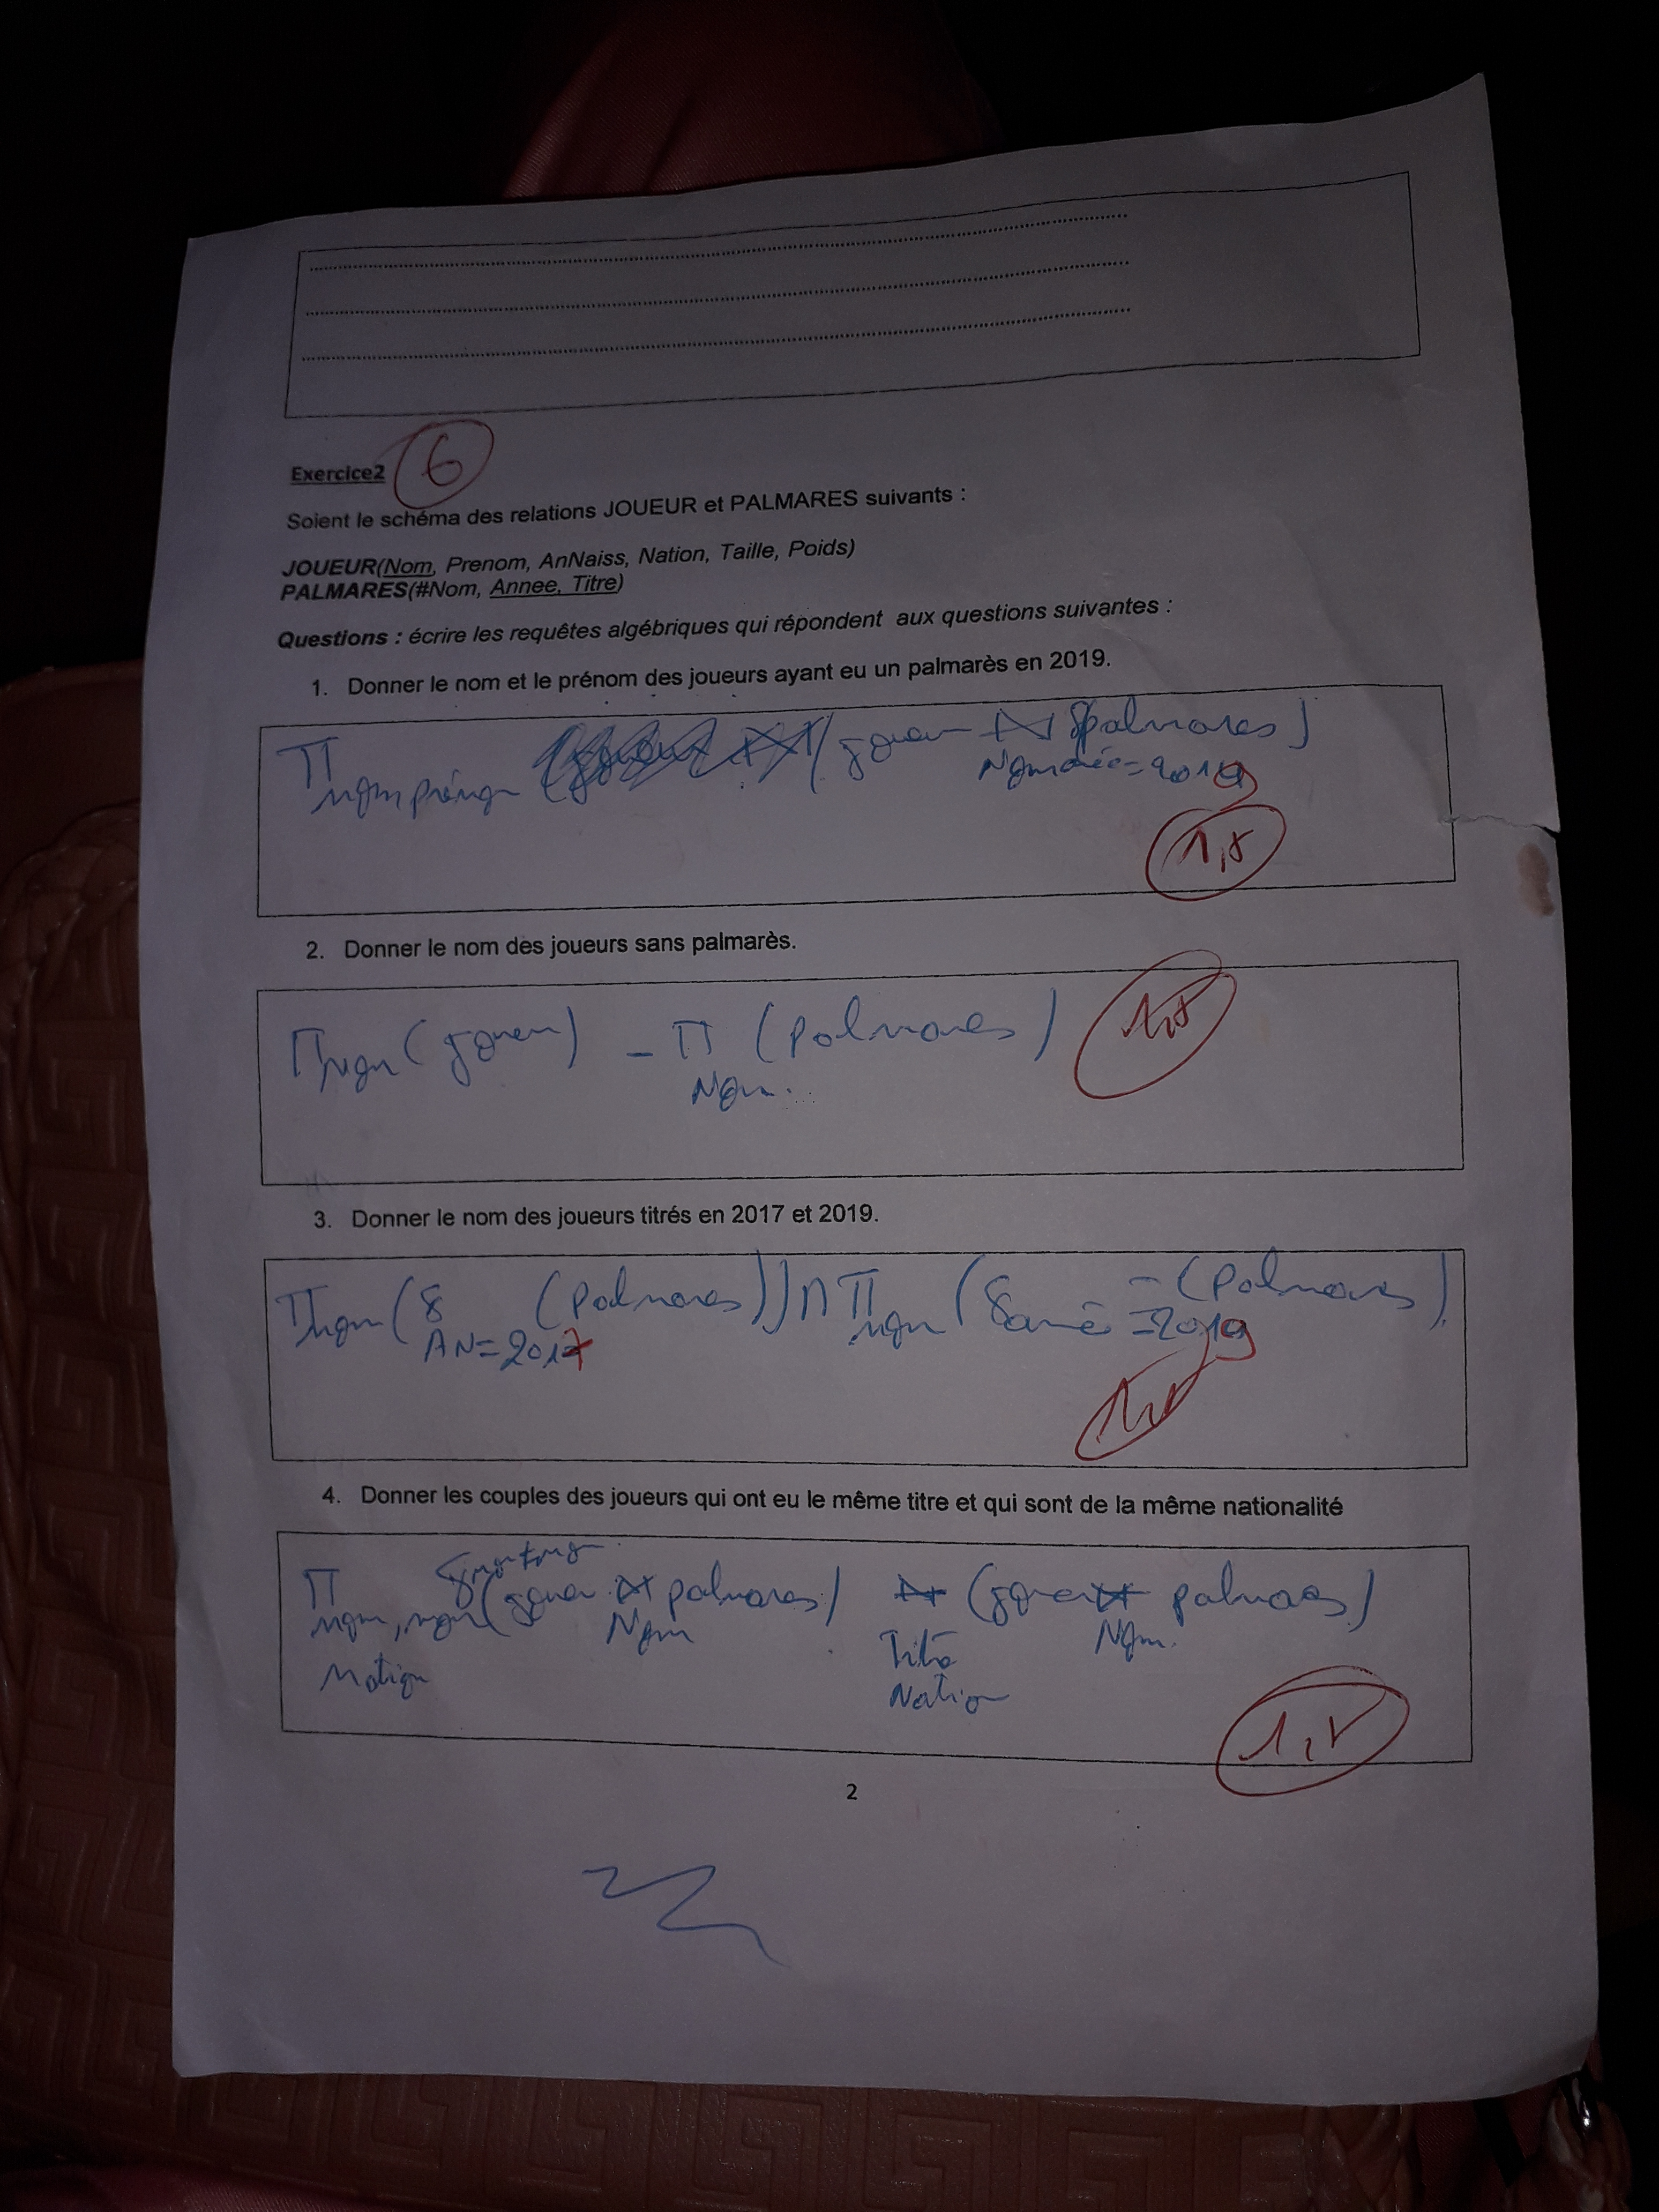 Exercice2
6
Soient le schéma des relations JOUEUR et PALMARES suivants :
JOUEUR(Nom, Prenom, AnNaiss, Nation, Taille, Poids)
PALMARES(#Nom, Annee, Titre)
Questions : écrire les requêtes algébriques qui répondent aux questions suivantes :
1. Donner le nom et le prénom des joueurs ayant eu un palmarès en 2019.
Π (joueur ⋈ palmares)
1,5
2. Donner le nom des joueurs sans palmarès.
Π nom (joueur) - Π (palmares)
Nom
1,5
3. Donner le nom des joueurs titrés en 2017 et 2019.
Π nom (δ (Palmares)) ∩ Π nom (δ (Palmares)
AN=2017 =2019
4. Donner les couples des joueurs qui ont eu le même titre et qui sont de la même nationalité
Π nom, nom (joueur ⋈ palmares) ⋈ (joueur ⋈ palmares)
Nom Nom
Nation Nation
1,5
2